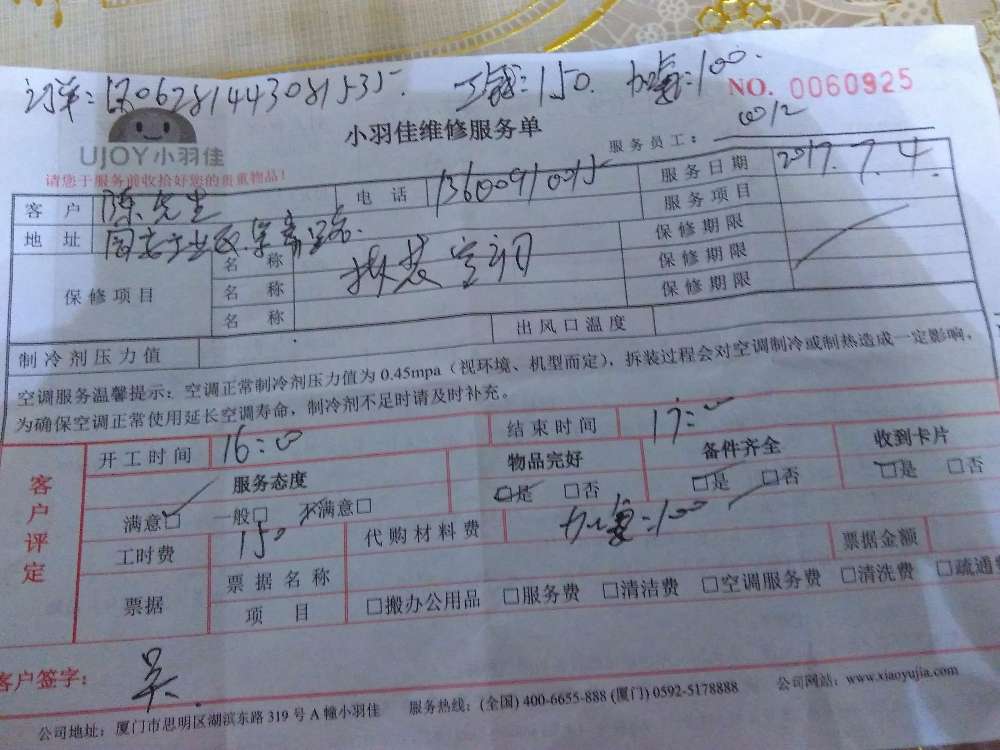 订单: 1506281443081535. 工钱:150. 加氟:100.
NO. 0060925
UJOY小羽佳
小羽佳维修服务单
服务员工: 0012
请您于服务前收拾好您的贵重物品!
客户 陈先生 电话 13600910015 服务日期 2017.7.4.
地址 服务项目
保修项目 名称 拆装空调 保修期限
名称 保修期限
名称 保修期限
制冷剂压力值 出风口温度
空调服务温馨提示: 空调正常制冷剂压力值为 0.45mpa (视环境、机型而定), 拆装过程会对空调制冷或制热造成一定影响,
为确保空调正常使用延长空调寿命, 制冷剂不足时请及时补充。
客户评定
开工时间 16:00 结束时间 17:00
服务态度 物品完好 备件齐全 收到卡片
满意□ 一般□ 不满意□ □是 □否 □是 □否 □是 □否
工时费 150 代购材料费 加氟:100 票据金额
票据 票据名称
项目 □搬办公用品 □服务费 □清洁费 □空调服务费 □清洗费 □疏通费
客户签字: 吴
公司地址: 厦门市思明区湖滨东路 319 号 A 幢小羽佳 服务热线: (全国) 400-6655-888 (厦门) 0592-5178888 公司网站: www.xiaoyujia.com